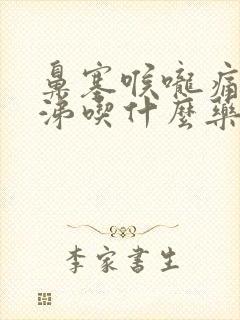 鼻塞喉嚨痛
涕喫什麼藥
李家書生